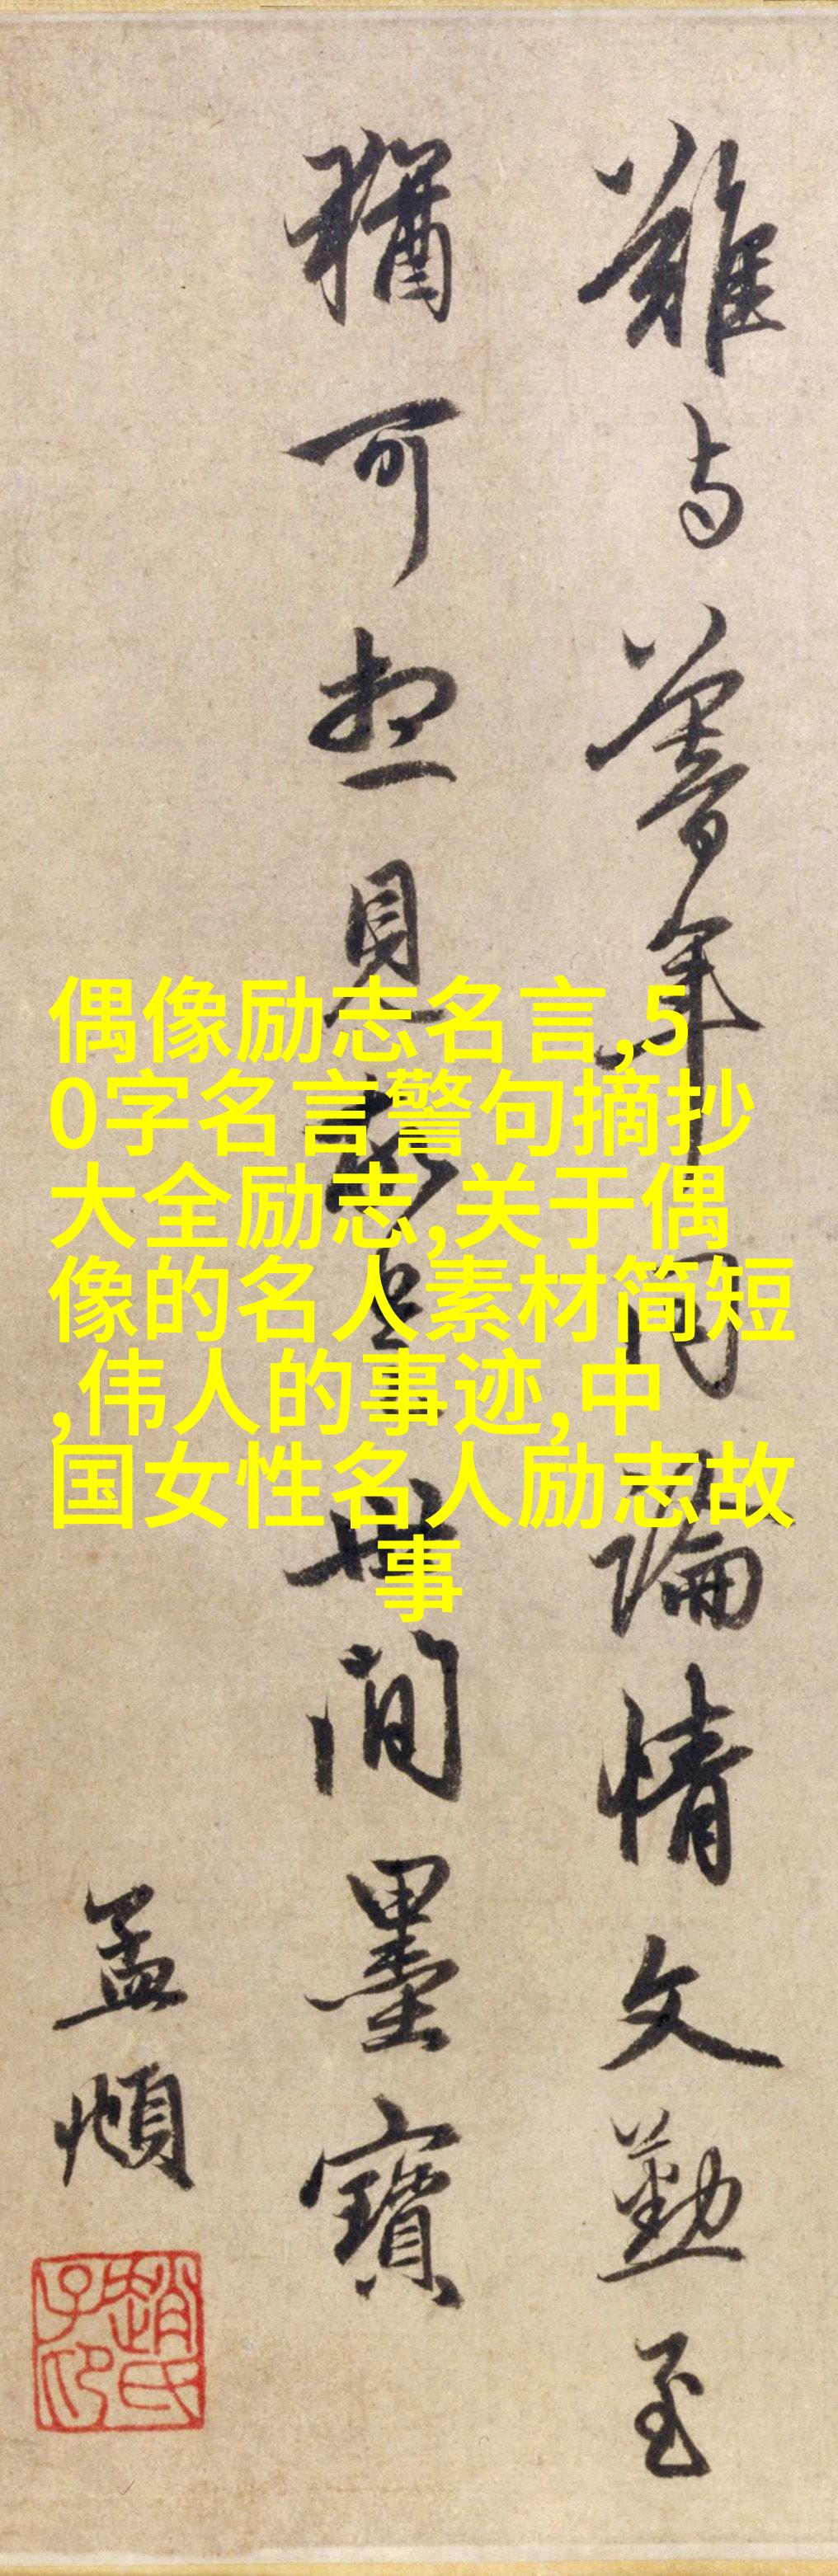 難与暮年同論情文勤至
猶可想見故是世間墨寶
孟頫
趙氏子昂
偶像励志名言,5
0字名言警句摘抄
大全励志,关于偶
像的名人素材简短
,伟人的事迹,中
国女性名人励志故
事